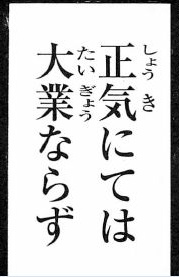 正気にては
大業ならず
しょうき
たいぎょう